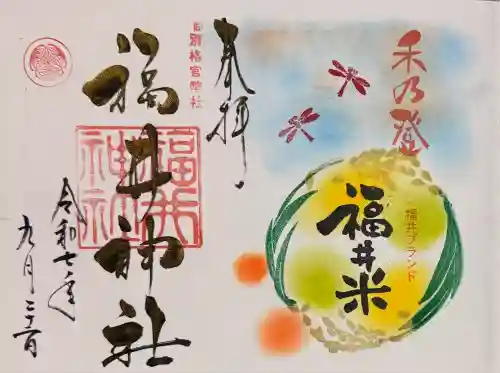 禾乃登
福井ブランド
福井米
奉拝
旧別格官幣社
福井神社
福井
神社
令和七年
九月二十一日